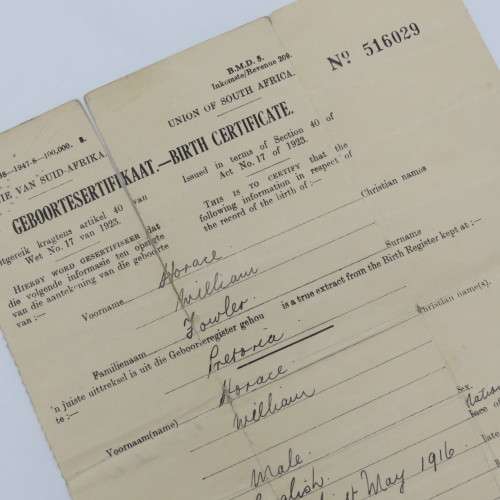 B.M.D. 5.
Inkomste/Revenue 209.
Nº 516029
UNION OF SOUTH AFRICA.
—1947-8—100,000. S.
IE VAN SUID-AFRIKA.
GEBOORTESERTIFIKAAT.—BIRTH CERTIFICATE.
Issued in terms of Section 40 of
Act No. 17 of 1923.
itgereik kragtens artikel 40 van
Wet No. 17 van 1923.
THIS IS TO CERTIFY that the
following information in respect of
the record of the birth of :—
HIERBY WORD GESERTIFISEER dat
die volgende informasie ten opsigte
van die aantekening van die geboorte
van :—
Voorname Horace Christian names
William
Familienaam Fowler. Surname
'n juiste uittreksel is uit die Geboorteregister gehou is a true extract from the Birth Register kept at :—
te :— Pretoria
Voornaam(name) Horace Christian name(s).
William
Male. Sex.
English. Nation
1st May 1916. Date